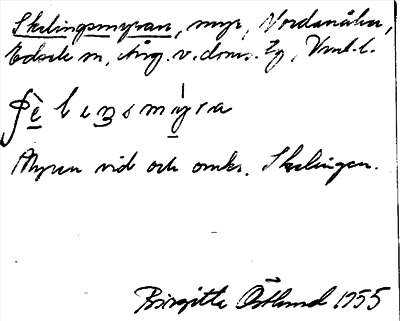 Skelingsmyran, myr, Nordanåker,
Edsele sn, Ång. v. doms. , Vnl. l.
ʃè l ɪ ŋ s m y̆ r a
Myren vid och omkr. Skelingen.
Birgitta Östlund 1955